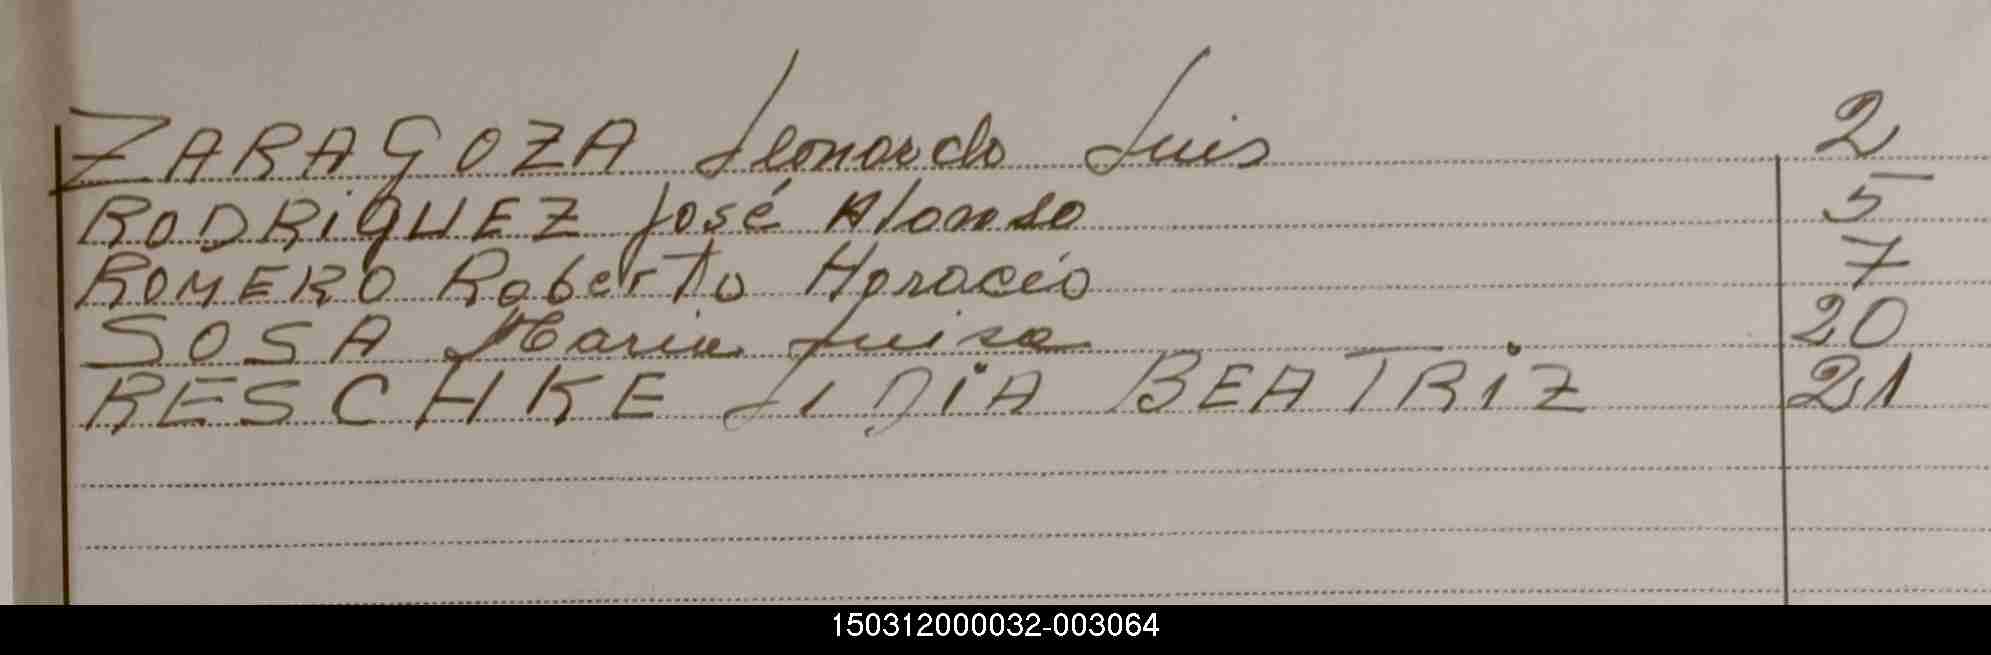 ZARAGOZA Leonardo Luis 2
RODRIGUEZ José Alonso 5
ROMERO Roberto Horacio 7
SOSA Maria Luisa 20
RESCHKE LIDIA BEATRIZ 21
150312000032-003064